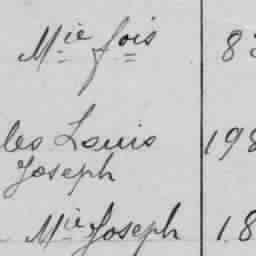 Mie fois 8
les Louis 198
Joseph
Mie Joseph 18